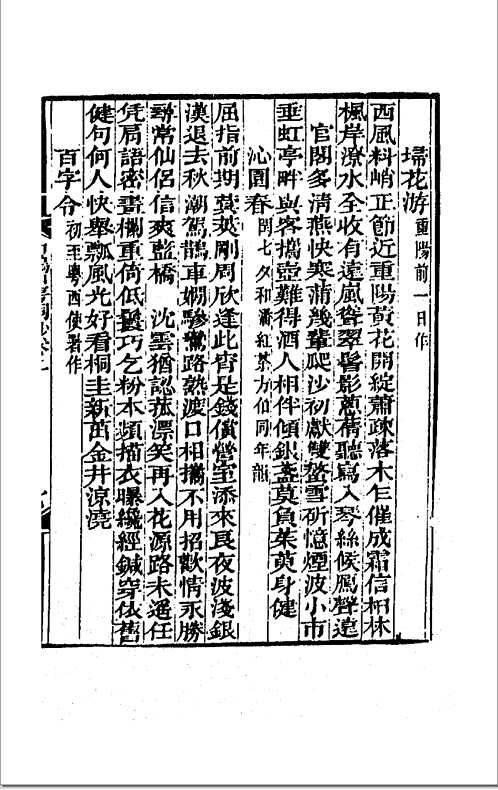 埽花游重陽前一日作
西風料峭正節近重陽黃花開綻蕭疎落木乍催成霜信桕林
楓岸潦水全收有遠嵐聳翠髻影蔥蒨聽寫入琴絲候鴈聲遠
官閣多清燕快寒蒲幾輩爬沙初獻雙螯雪斫憶煙波小市
垂虹亭畔與客攜壺難得酒人相伴傾銀盞莫負茱萸身健
沁園春閏七夕和瀟紅茶方伯同年韻
屈指前期蓂莢剛周欣逢此宵是錢償營室添來良夜波淺銀
漢退去秋潮駕鵲車嫻驂鸞路熟渡口相攜不用招歡情永勝
尋常仙侶信爽藍橋 沈雲猶認菰漂笑再入花源路未遙任
凭肩語密畫欄重倚低鬟巧乞粉本頻描衣曝纔經鍼穿依舊
健句何人快舉瓢風光好看桐圭新茁金井涼澆
百字令初至粵西使署作